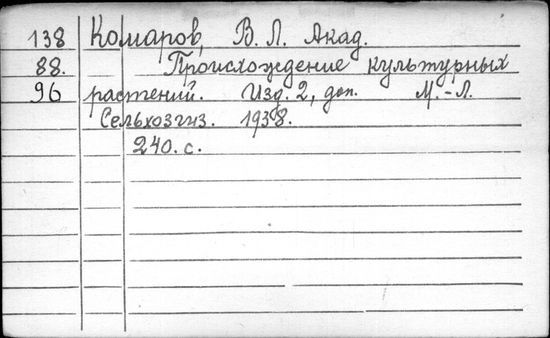 138 Комаров, В. Л. Акад.
88. Происхождение культурных
96 растений. Изд. 2, доп. М.-Л.
Сельхозгиз. 1938.
240. с.